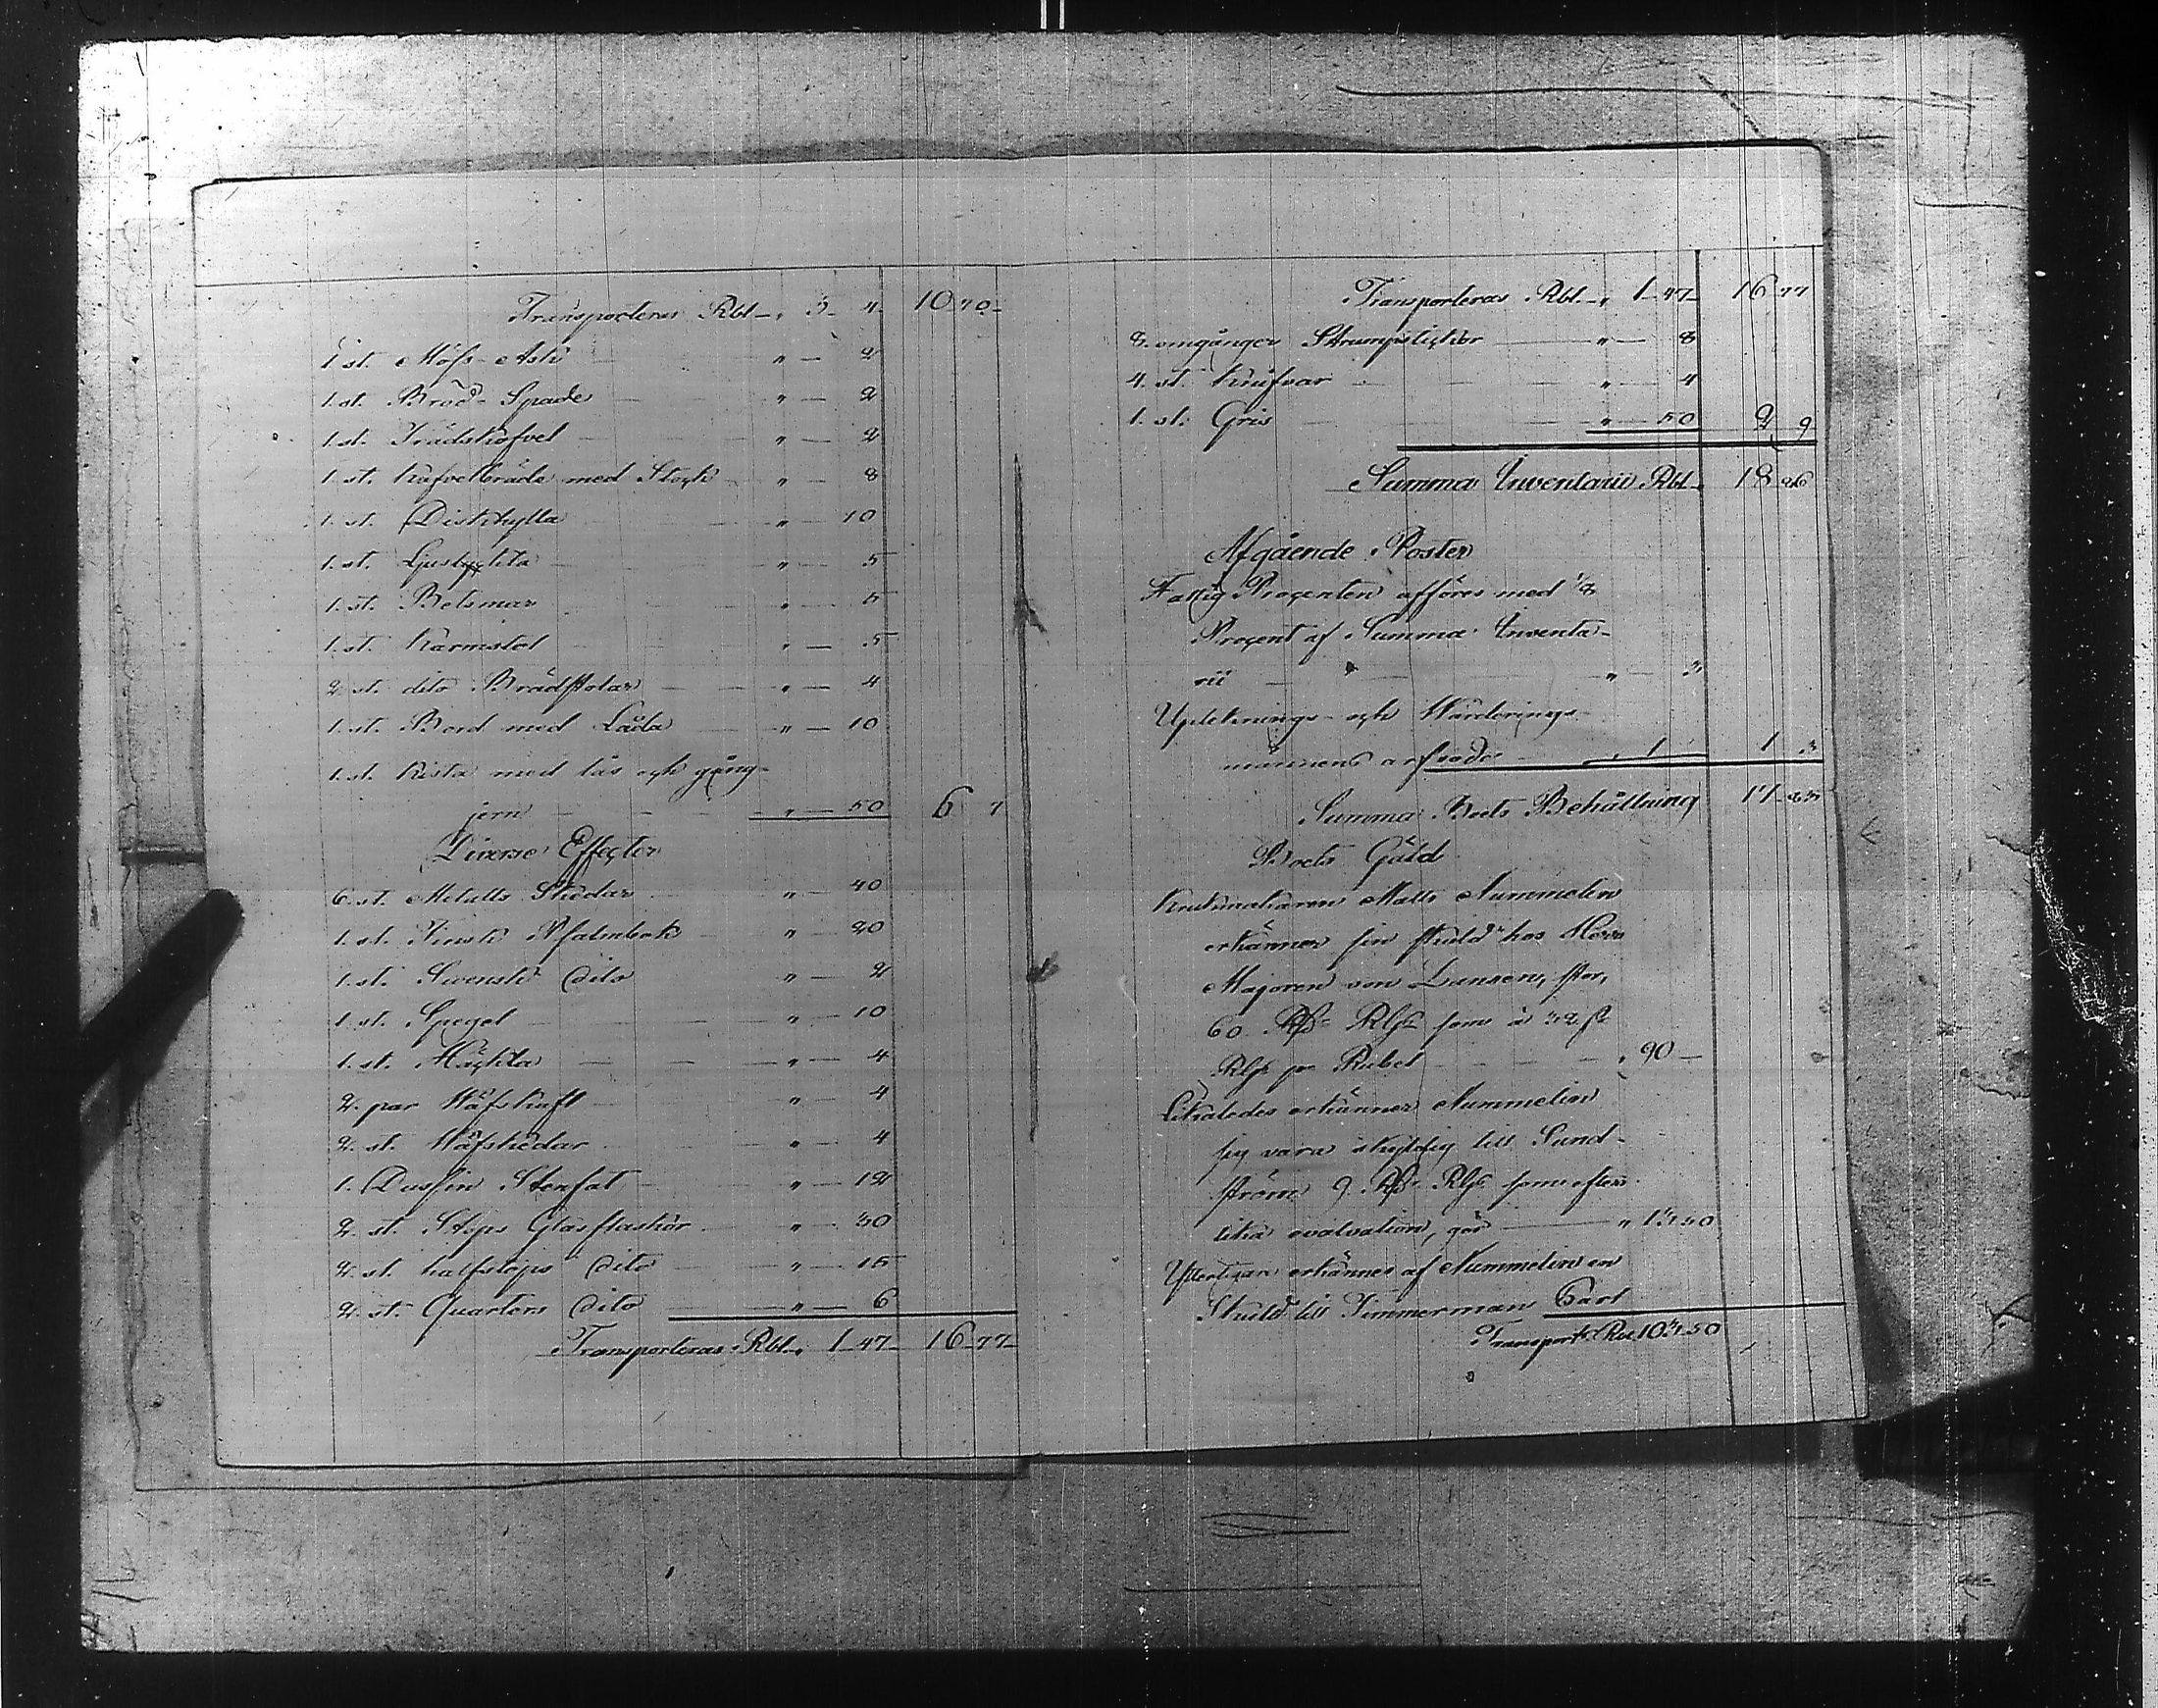 Transporteras Rbl „ 5 4 10 70
1 st. Möss-Ask „ 2
1. st. Bröd-Spade „ 2
1. st. Trädskofvel „ 2
1. st. Kafvelbräde med Stock „ 8
1. st. Diskhylla „ 10
1. st. Ljuslyckta „ 5
1. st. Betsmar „ 5
1. st. Karmstol „ 5
2. st. dito Brädstolar „ 4
1. st. Bord med Låda „ 10
1. st. Kista med lås och gång-
jern „ 50 6 7
Diverse Effecter
6. st. Metalls Skedar „ 40
1. st. Finsk Psalmbok „ 20
1. st. Svensk dito „ 2
1. st. Spegel „ 10
1. st. Häckla „ 4
2. par Wäfskaft „ 4
2. st. Wäfskedar „ 4
1. Dussin Stenfat „ 12
2. st. Stops Glasflaskor „ 30
2. st. halfstops dito „ 15
2. st. Quarters dito „ 6
Transporteras Rbl „ 1 47 16 77
Transporteras Rbl „ 1 47 16 77
8. omgånger Strumpstickor „ 8
4. st. Knifvar „ 4
1. st. Gris „ 50 2 9
Summa Inventarii Rbl 18 86
Afgående Poster
Fattig Procenten afföres med 1/8
Procent af Summa Inventa-
rii „ 3
Upteknings- och Wärderings-
männens arfvode „ 1 1 3
Summa Boets Behållning 17 83
Boets Gäld
Krukmakaren Matts Nummelin
erkänner sin skuld hos Herr
Majoren von
60. som à 32
Rubel „ 90
Likaledes erkänner Nummelin
sig vara skyldig till Sund-
ström 9. som efter
lika evalvation, gör „ 13 50
Ytterligare erkännes af Nummelin en
Skuld till Timmerman Carl
Transport Rbl 103 50